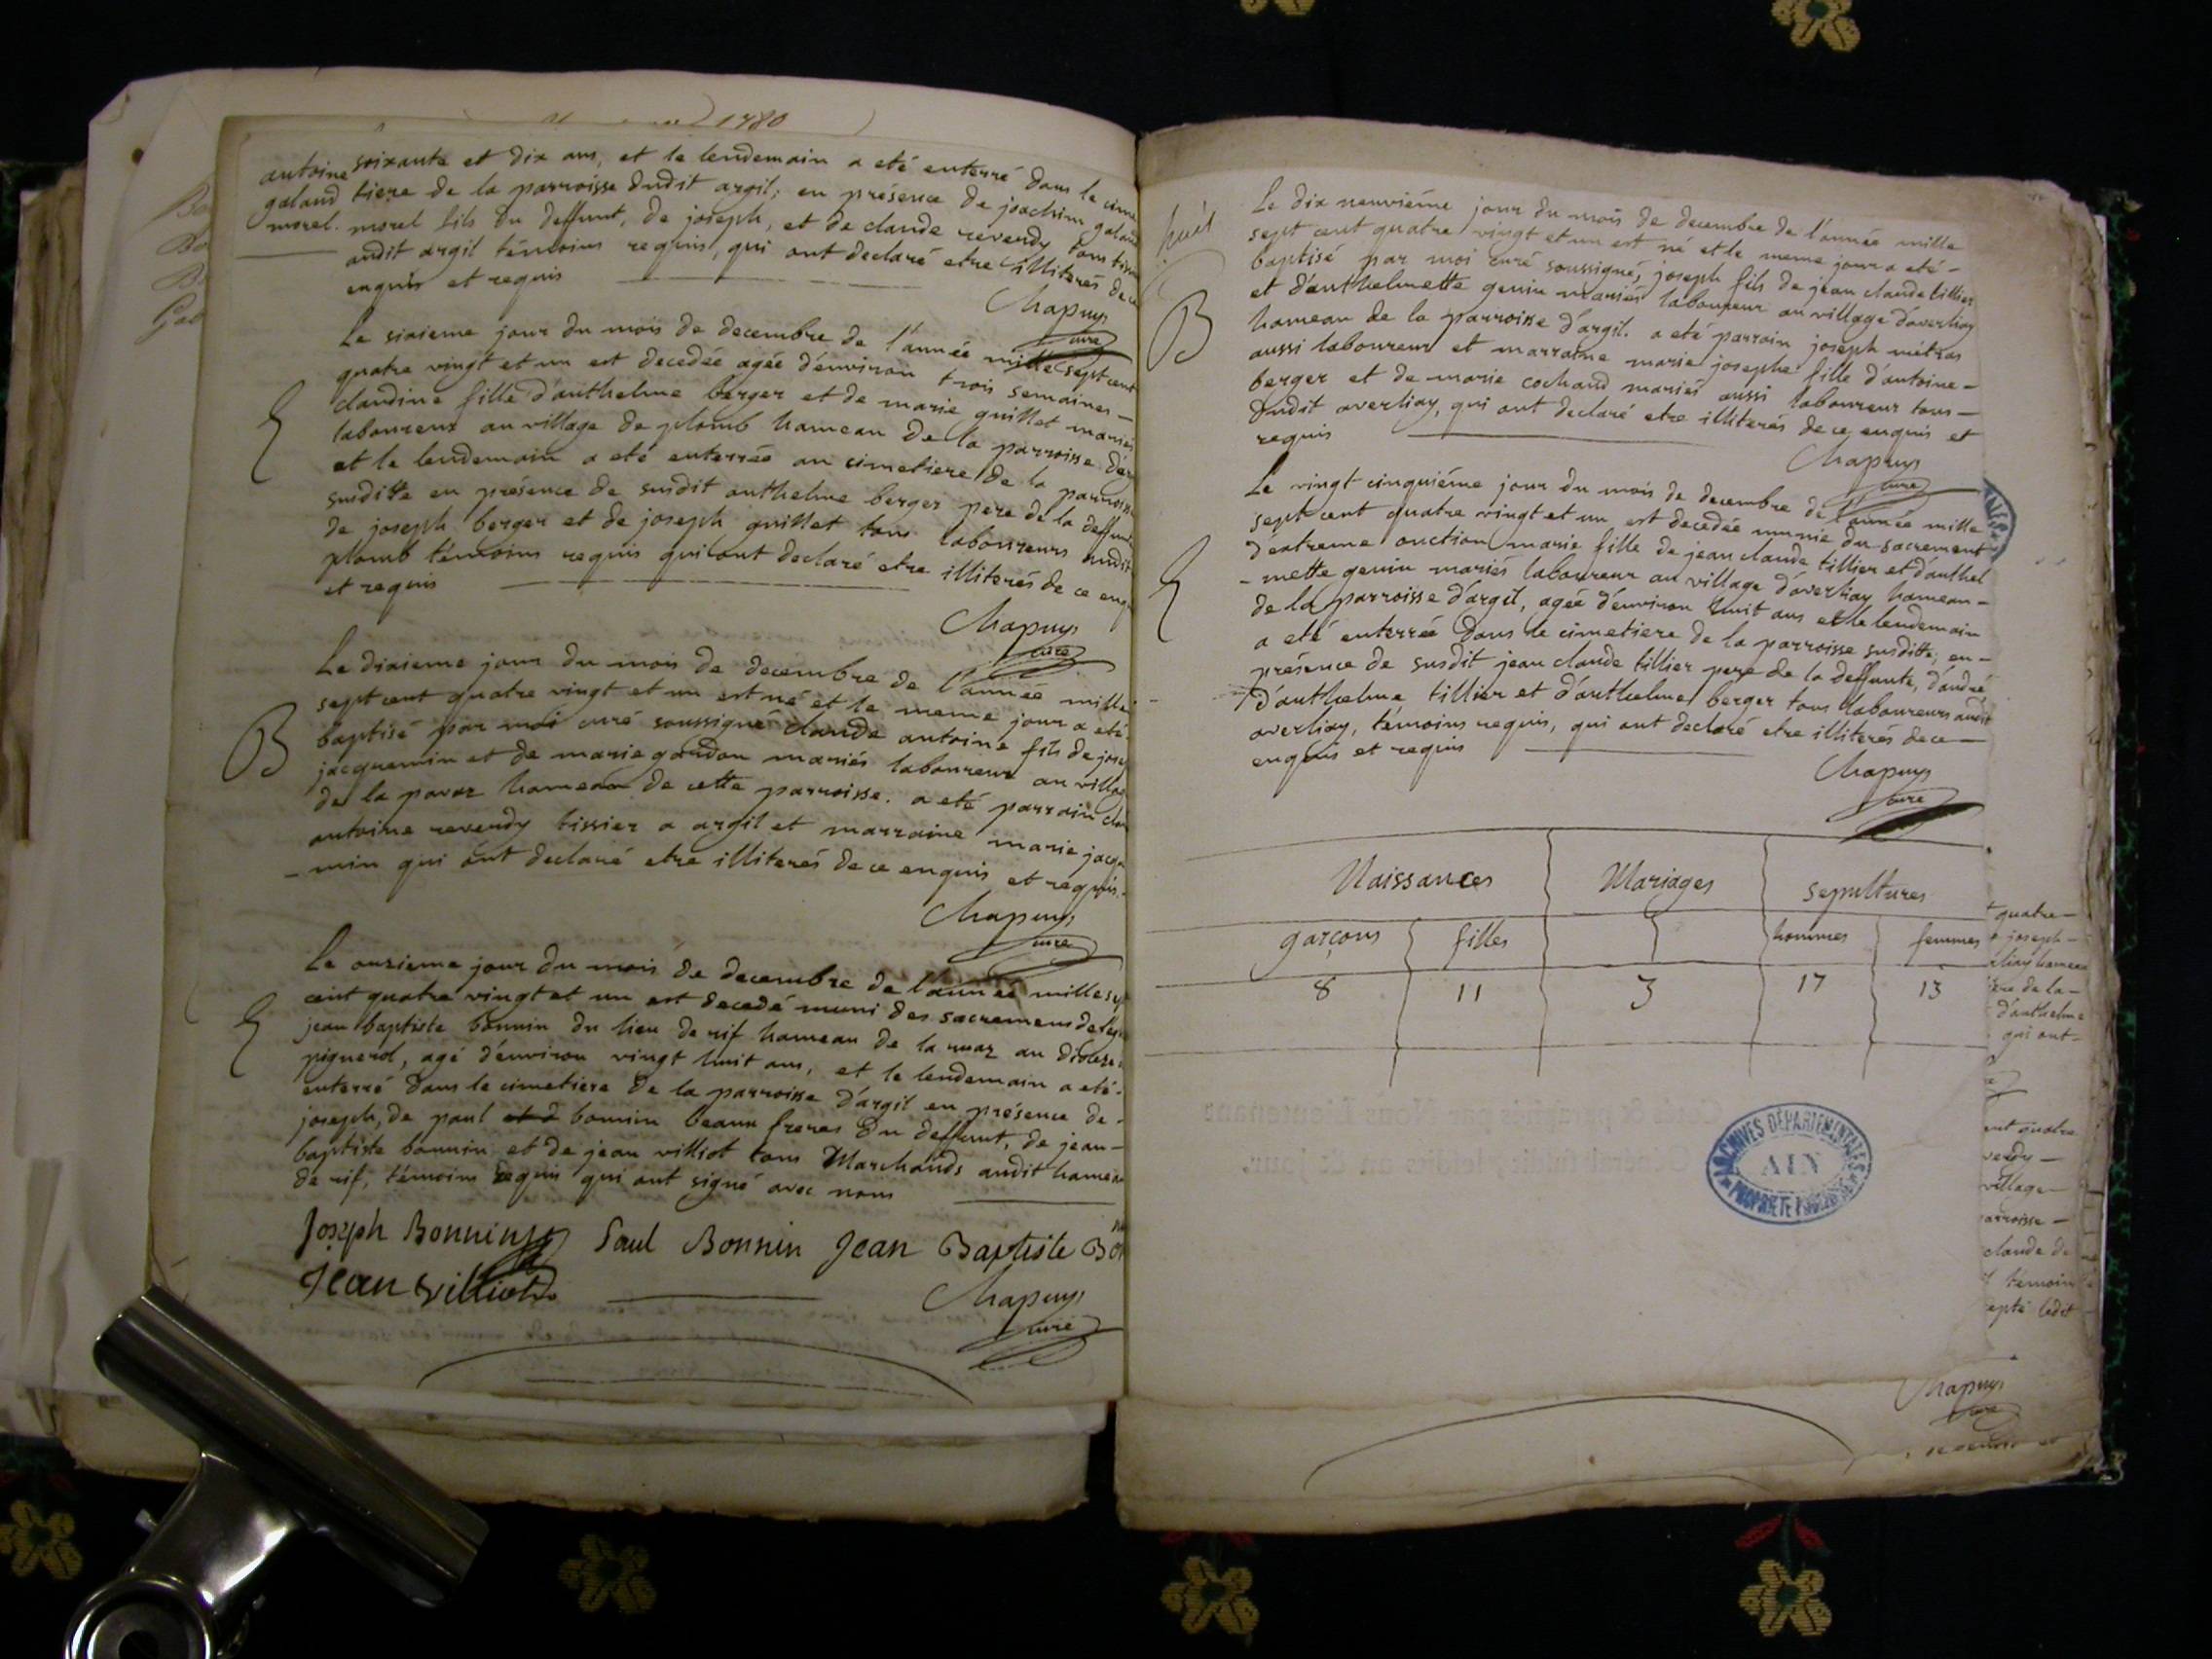 1780
antoine soixante et dix ans, et le lendemain a eté enterré dans le cime
galand tiere de la parroisse dudit argil; en présence de joachim galand
morel. morel fils du deffunt, de joseph, et de claude revendy tous
audit argil témoins requis, qui ont declaré etre illiterés de ce
enquis et requis
Chapuys
curé
Le sixieme jour du mois de decembre de l'année mille sept cent
quatre vingt et un est decedée agée d'environ trois semaines -
claudine fille d'anthelme berger et de marie guillet mariés
laboureur au village de plomb hameau de la parroisse
et le lendemain a eté enterrée au cimetiere de la parroisse
susditte en présence de susdit anthelme berger pere de la deffunte
de joseph berger et de joseph guillet tous laboureurs audit
plomb témoins requis qui ont declaré etre illiterés de ce enq
et requis
Chapuys
curé
Le dixieme jour du mois de decembre de l'année mille
sept cent quatre vingt et un est né et le meme jour a eté
B baptisé par moi curé soussigné claude antoine fils de jose
jacquemin et de marie mariés laboureur au village
de la hameau de cette parroisse. a eté parrain
antoine revendy tissier a argil et marraine marie jacq
- min qui ont declaré etre illiterés de ce enquis et requis.
Chapuys
curé
Le onzieme jour du mois de decembre de l'année mille
cent quatre vingt et un est decedé muni des sacremens de
jean baptiste bonnin du lieu de rif hameau de la au
pignerol, agé d'environ vingt huit ans, et le lendemain a eté
enterré dans le cimetiere de la parroisse d'argil en présence de
joseph, de paul et d bonnin beaux freres du deffunt, de jean -
baptiste bonnin et de jean villiot tous Marchands audit hameau
de rif, témoins requis qui ont signé avec nous
Joseph Bonnin Paul Bonnin Jean Baptiste
Jean Villiot
Chapuys
curé
Le dix neuviéme jour du mois de decembre de l'année mille
sept cent quatre vingt et un est né et le meme jour a eté -
baptisé par moi curé soussigné, joseph fils de jean claude tillier
et d'anthelmette genin mariés laboureur au village d'averliay
B hameau de la parroisse d'argil. a eté parrain joseph métras
aussi laboureur et marraine marie josephe fille d'antoine -
berger et de marie cochand mariés aussi laboureur tous -
dudit averliay, qui ont declaré etre illiterés de ce enquis et
requis
Chapuys
curé
Le vingt cinquiéme jour du mois de decembre de l'année mille
sept cent quatre vingt et un est decedée munie du sacrement
d'extreme onction marie fille de jean claude tillier et d'anthel
- mette genin mariés laboureur au village d'averliay hameau -
de la parroisse d'argil, agée d'environ huit ans et le lendemain
a eté enterrée dans le cimetiere de la parroisse susditte, en -
présence de susdit jean claude tillier pere de la deffunte, d'andré
d'anthelme tillier et d'anthelme berger tous laboureurs audit
averliay, témoins requis, qui ont declaré etre illiterés de ce -
enquis et requis
Chapuys
curé
Naissances Mariages sepultures
garçons filles hommes femmes
8 11 3 17 13
ARCHIVES DÉPARTEMENTALES
AIN
PROPRIÉTÉ PUBLIQUE
quatre -
joseph -
hameau
de la -
d'anthelme
qui ont -
quatre
village -
clande de
témoin
ledit
Chapuys
curé